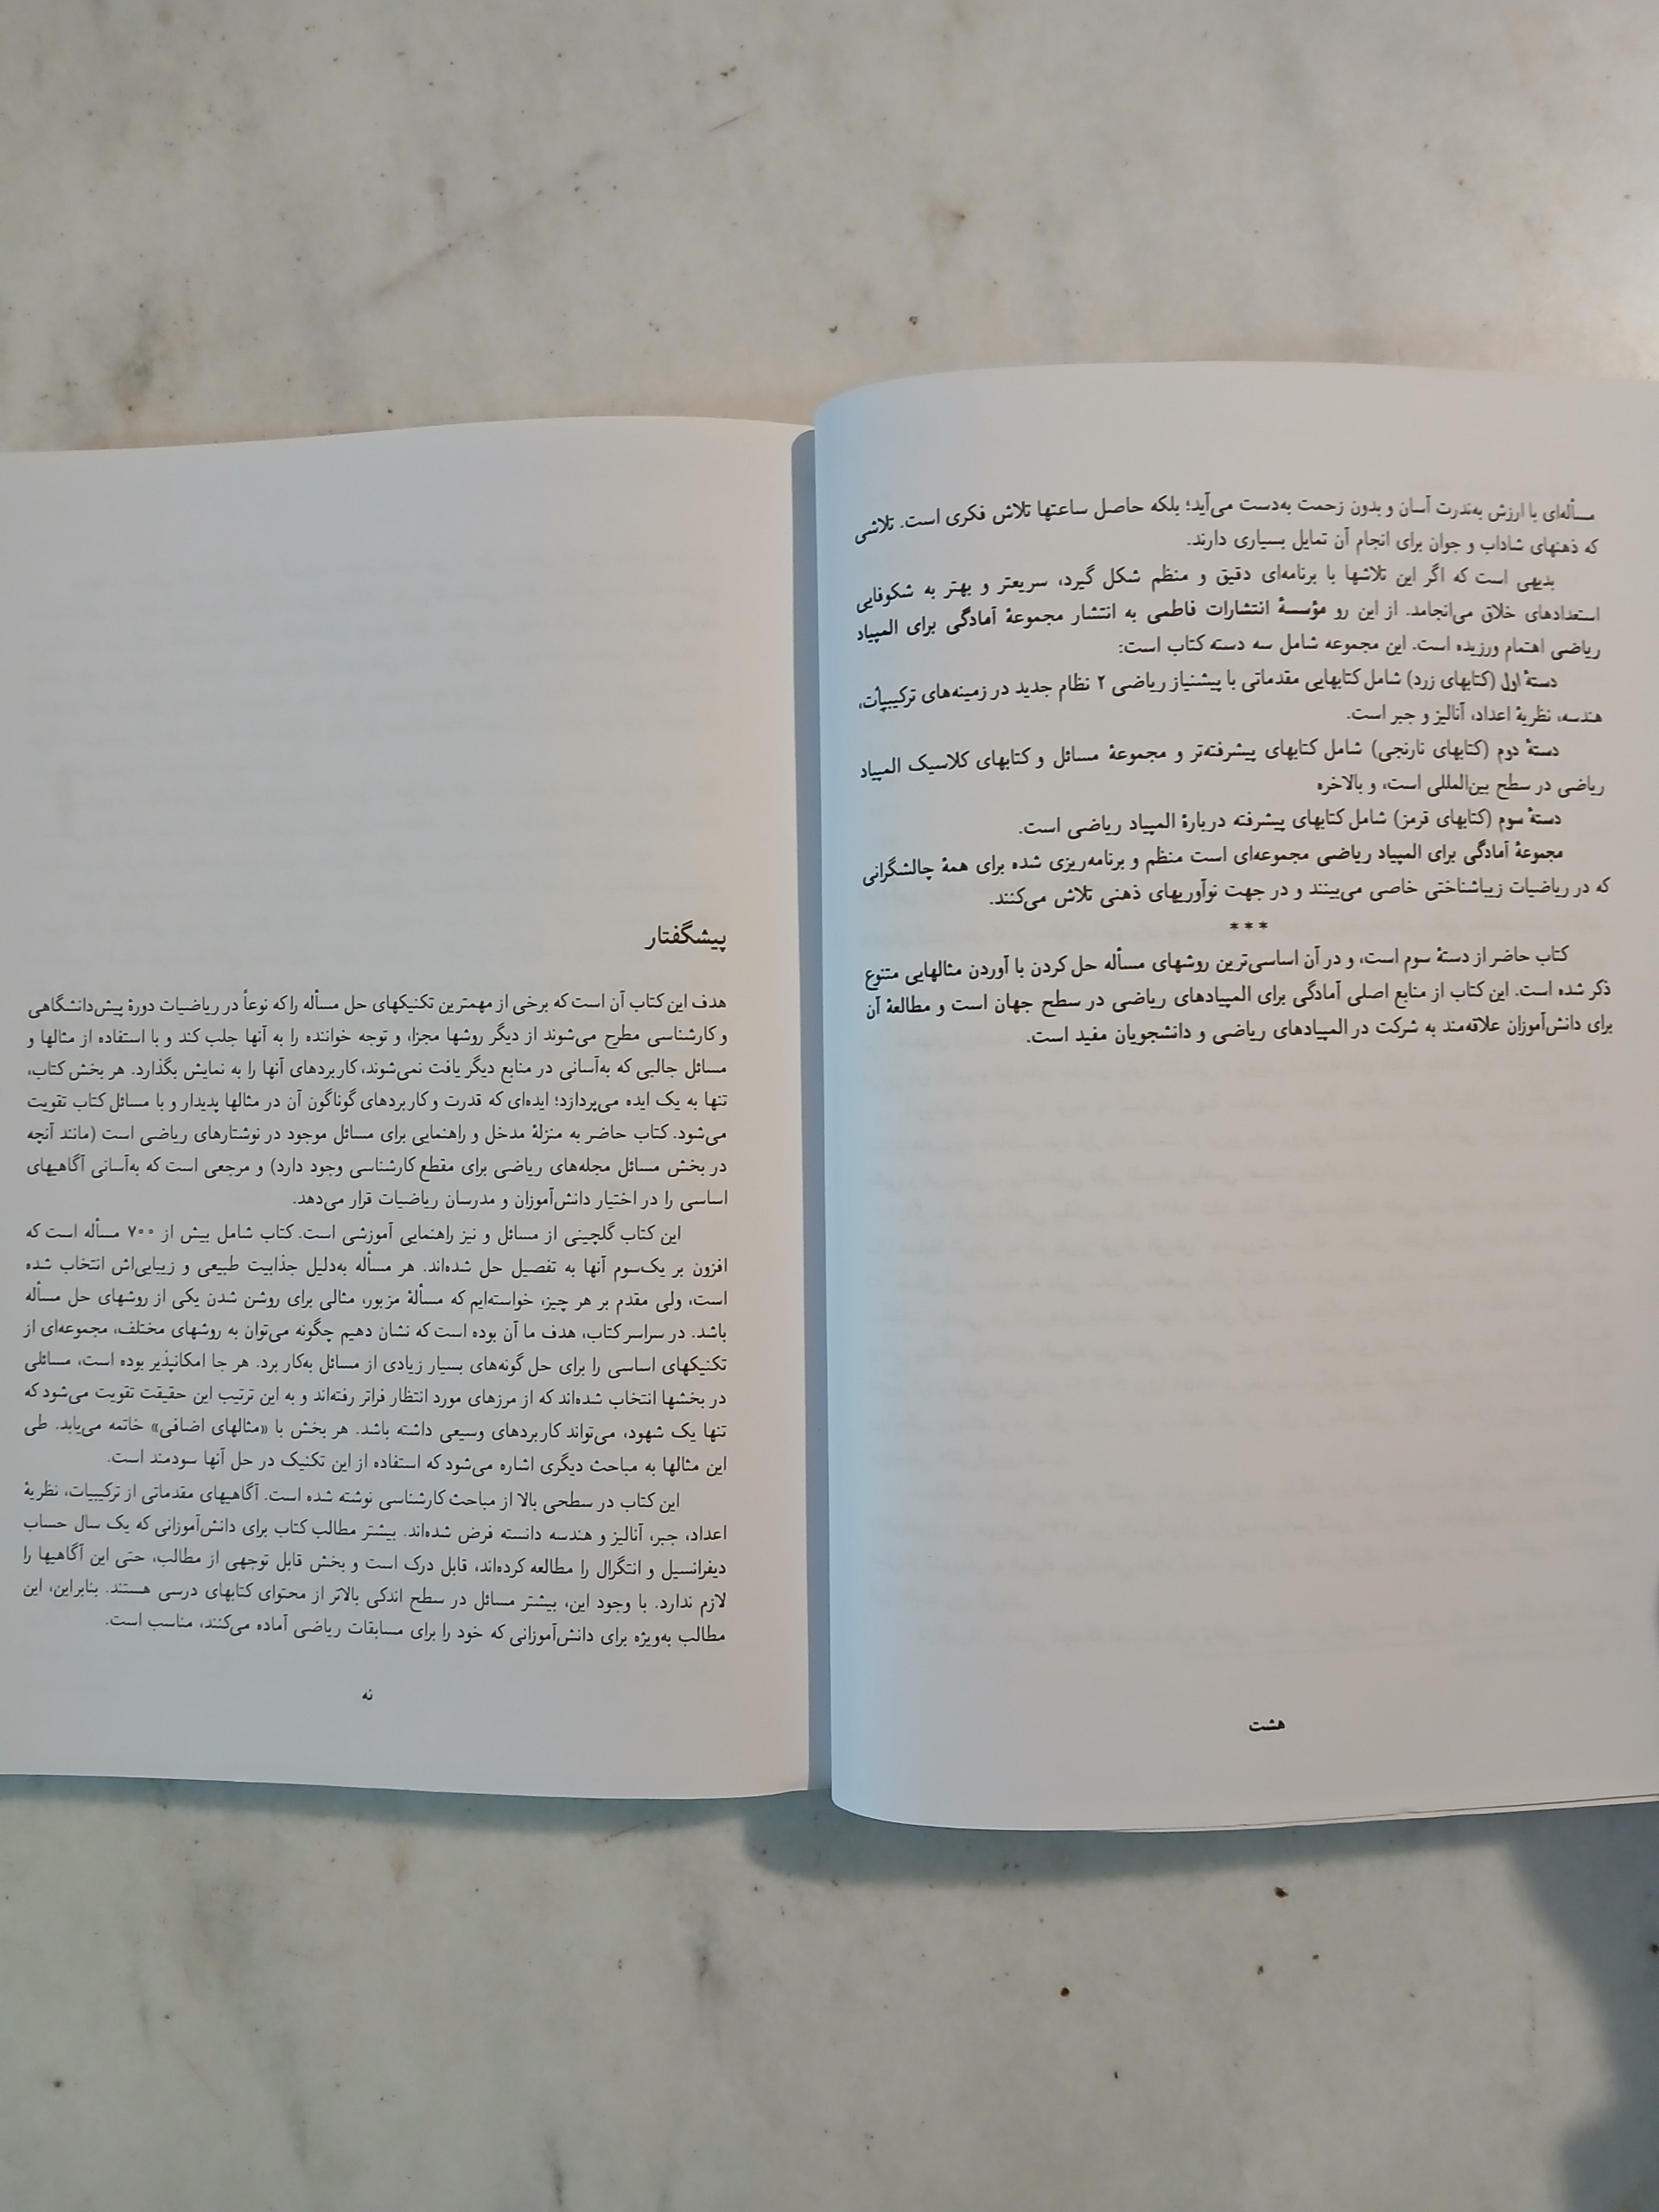 مسأله‌ای با ارزش به‌ندرت آسان و بدون زحمت به‌دست می‌آید؛ بلکه حاصل ساعتها تلاش فکری است. تلاشی
که ذهنهای شاداب و جوان برای انجام آن تمایل بسیاری دارند.
بدیهی است که اگر این تلاشها با برنامه‌ای دقیق و منظم شکل گیرد، سریعتر و بهتر به شکوفایی
استعدادهای خلاق می‌انجامد. از این رو مؤسسهٔ انتشارات فاطمی به انتشار مجموعهٔ آمادگی برای المپیاد
ریاضی اهتمام ورزیده است. این مجموعه شامل سه دسته کتاب است:
دستهٔ اول (کتابهای زرد) شامل کتابهایی مقدماتی با پیشنیاز ریاضی ۲ نظام جدید در زمینه‌های ترکیبیات،
هندسه، نظریهٔ اعداد، آنالیز و جبر است.
دستهٔ دوم (کتابهای نارنجی) شامل کتابهای پیشرفته‌تر و مجموعهٔ مسائل و کتابهای کلاسیک المپیاد
ریاضی در سطح بین‌المللی است، و بالاخره
دستهٔ سوم (کتابهای قرمز) شامل کتابهای پیشرفته دربارهٔ المپیاد ریاضی است.
مجموعهٔ آمادگی برای المپیاد ریاضی مجموعه‌ای است منظم و برنامه‌ریزی شده برای همهٔ چالشگرانی
که در ریاضیات زیباشناختی خاصی می‌بینند و در جهت نوآوریهای ذهنی تلاش می‌کنند.
***
کتاب حاضر از دستهٔ سوم است، و در آن اساسی‌ترین روشهای مسأله حل کردن با آوردن مثالهایی متنوع
ذکر شده است. این کتاب از منابع اصلی آمادگی برای المپیادهای ریاضی در سطح جهان است و مطالعهٔ آن
برای دانش‌آموزان علاقه‌مند به شرکت در المپیادهای ریاضی و دانشجویان مفید است.
هشت
پیشگفتار
هدف این کتاب آن است که برخی از مهمترین تکنیکهای حل مسأله را که نوعاً در ریاضیات دورهٔ پیش‌دانشگاهی
و کارشناسی مطرح می‌شوند از دیگر روشها مجزا، و توجه خواننده را به آنها جلب کند و با استفاده از مثالها و
مسائل جالبی که به‌آسانی در منابع دیگر یافت نمی‌شوند، کاربردهای آنها را به نمایش بگذارد. هر بخش کتاب،
تنها به یک ایده می‌پردازد؛ ایده‌ای که قدرت و کاربردهای گوناگون آن در مثالها پدیدار و با مسائل کتاب تقویت
می‌شود. کتاب حاضر به منزلهٔ مدخل و راهنمایی برای مسائل موجود در نوشتارهای ریاضی است (مانند آنچه
در بخش مسائل مجله‌های ریاضی برای مقطع کارشناسی وجود دارد) و مرجعی است که به‌آسانی آگاهیهای
اساسی را در اختیار دانش‌آموزان و مدرسان ریاضیات قرار می‌دهد.
این کتاب گلچینی از مسائل و نیز راهنمایی آموزشی است. کتاب شامل بیش از ۷۰۰ مسأله است که
افزون بر یک‌سوم آنها به تفصیل حل شده‌اند. هر مسأله به‌دلیل جذابیت طبیعی و زیبایی‌اش انتخاب شده
است، ولی مقدم بر هر چیز، خواسته‌ایم که مسألهٔ مزبور، مثالی برای روشن شدن یکی از روشهای حل مسأله
باشد. در سراسر کتاب، هدف ما آن بوده است که نشان دهیم چگونه می‌توان به روشهای مختلف، مجموعه‌ای از
تکنیکهای اساسی را برای حل گونه‌های بسیار زیادی از مسائل به‌کار برد. هر جا امکانپذیر بوده است، مسائلی
در بخشها انتخاب شده‌اند که از مرزهای مورد انتظار فراتر رفته‌اند و به این ترتیب این حقیقت تقویت می‌شود که
تنها یک شهود، می‌تواند کاربردهای وسیعی داشته باشد. هر بخش با «مثالهای اضافی» خاتمه می‌یابد. طی
این مثالها به مباحث دیگری اشاره می‌شود که استفاده از این تکنیک در حل آنها سودمند است.
این کتاب در سطحی بالا از مباحث کارشناسی نوشته شده است. آگاهیهای مقدماتی از ترکیبیات، نظریهٔ
اعداد، جبر، آنالیز و هندسه دانسته فرض شده‌اند. بیشتر مطالب کتاب برای دانش‌آموزانی که یک سال حساب
دیفرانسیل و انتگرال را مطالعه کرده‌اند، قابل درک است و بخش قابل توجهی از مطالب، حتی این آگاهیها را
لازم ندارد. با وجود این، بیشتر مسائل در سطح اندکی بالاتر از محتوای کتابهای درسی هستند. بنابراین، این
مطالب به‌ویژه برای دانش‌آموزانی که خود را برای مسابقات ریاضی آماده می‌کنند، مناسب است.
نه